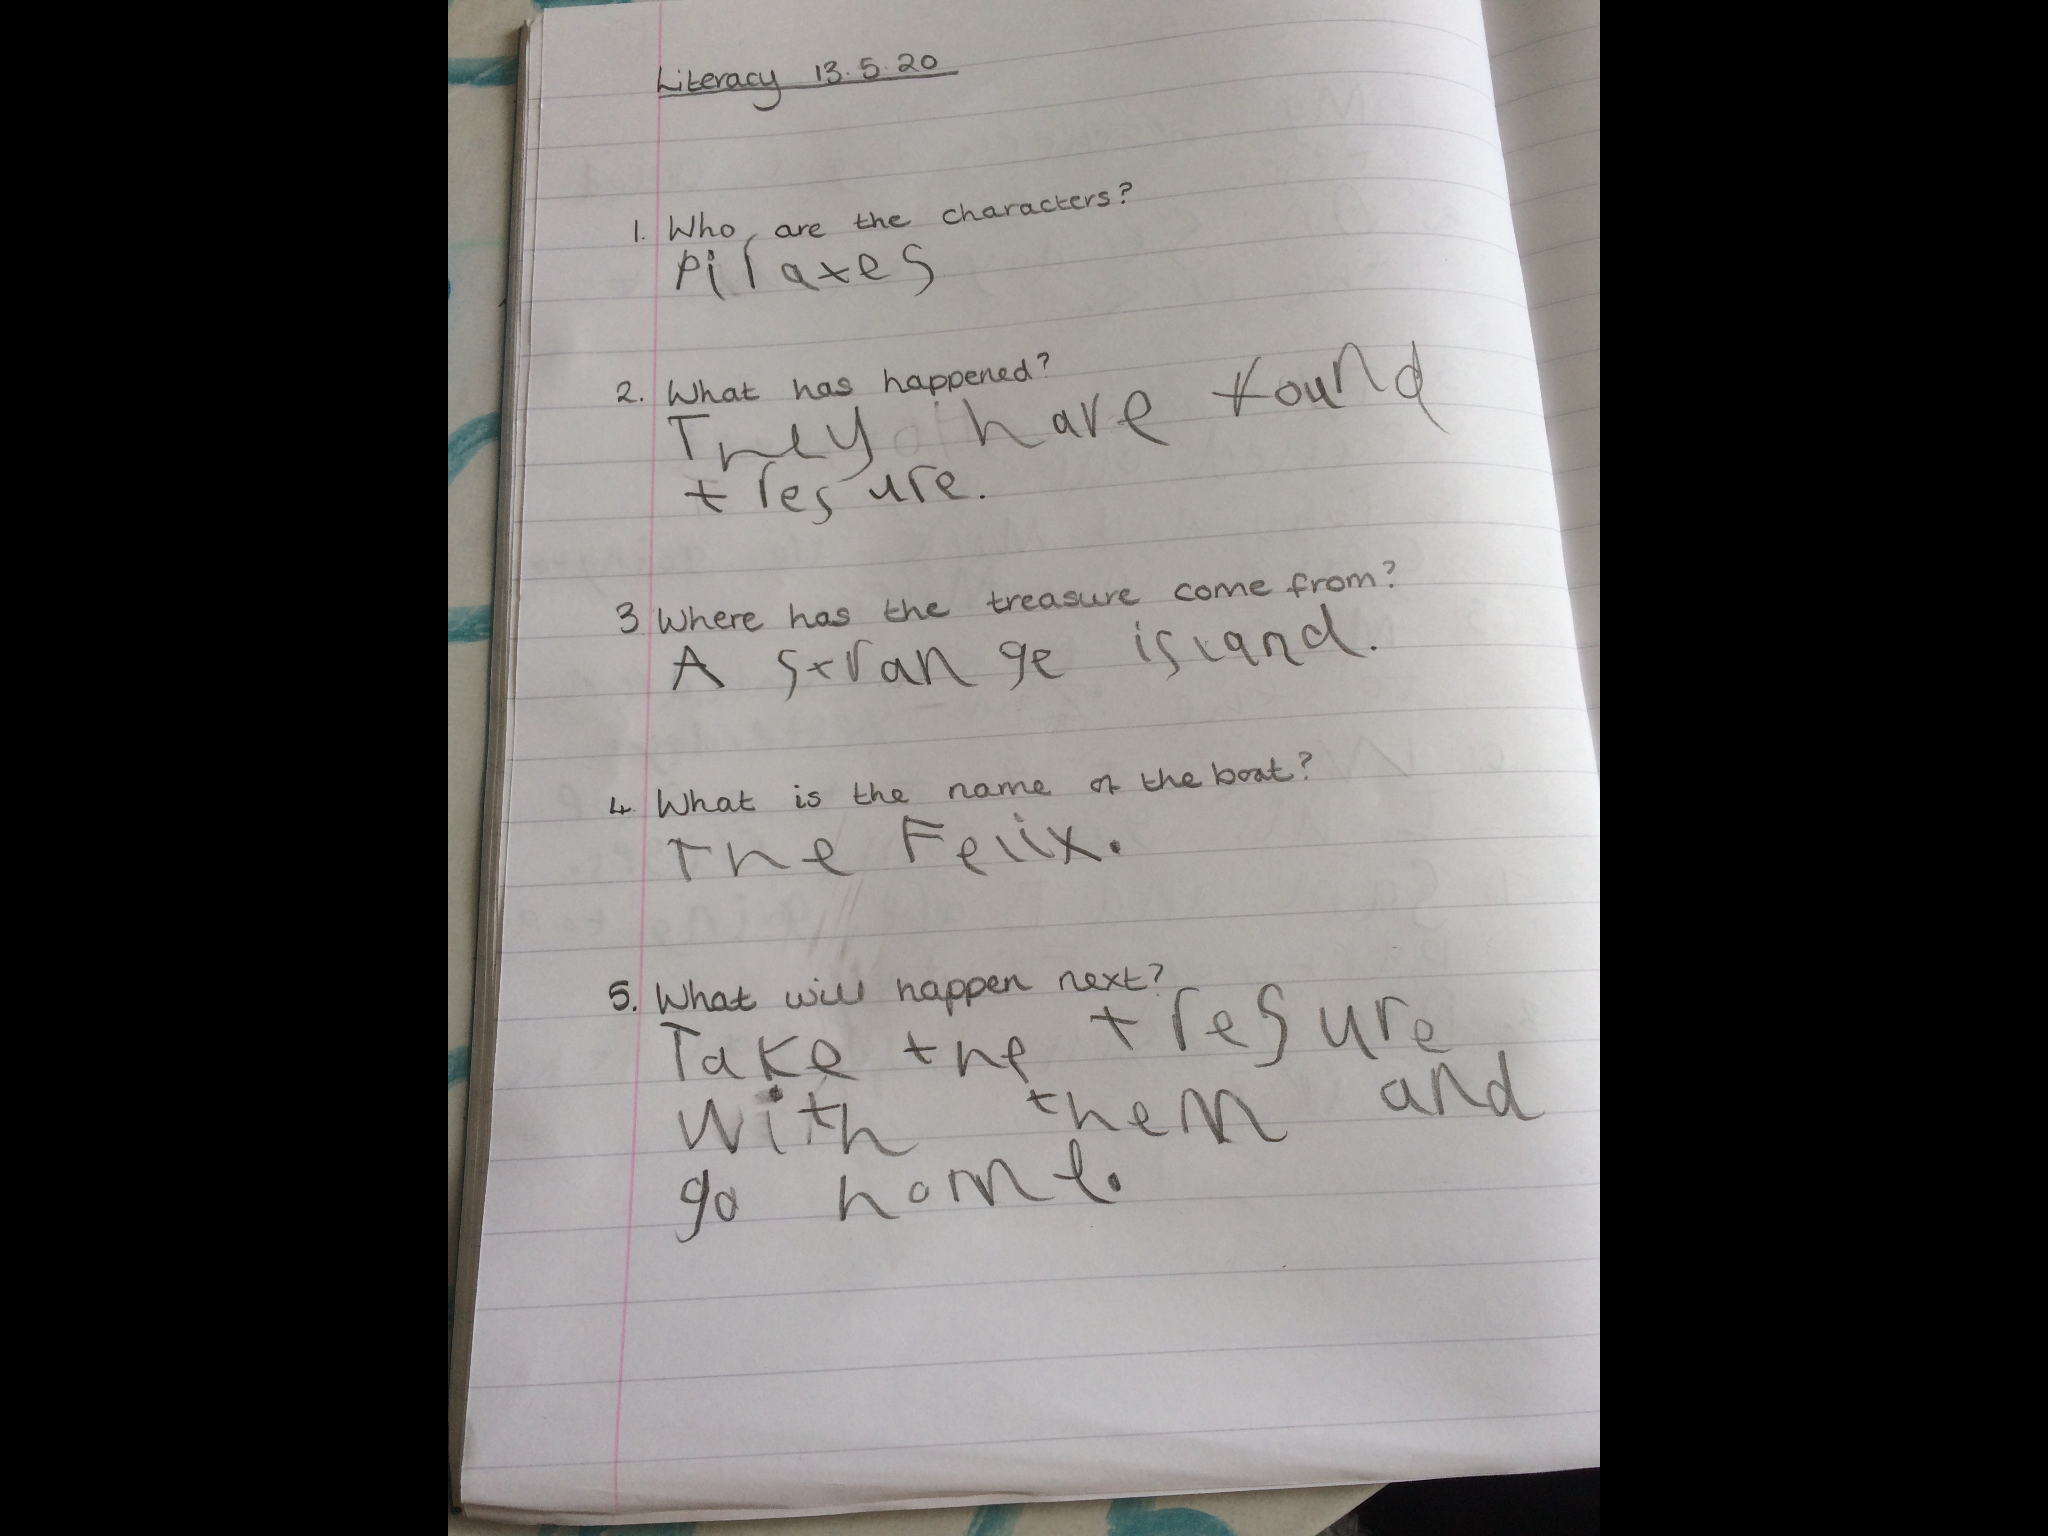 Literacy 13.5.20
1. Who are the characters?
Pirates
2. What has happened?
They have found
tresure.
3 Where has the treasure come from?
A strange island.
4. What is the name of the boat?
The Felix.
5. What will happen next?
Take the tresure
with them and
go home.